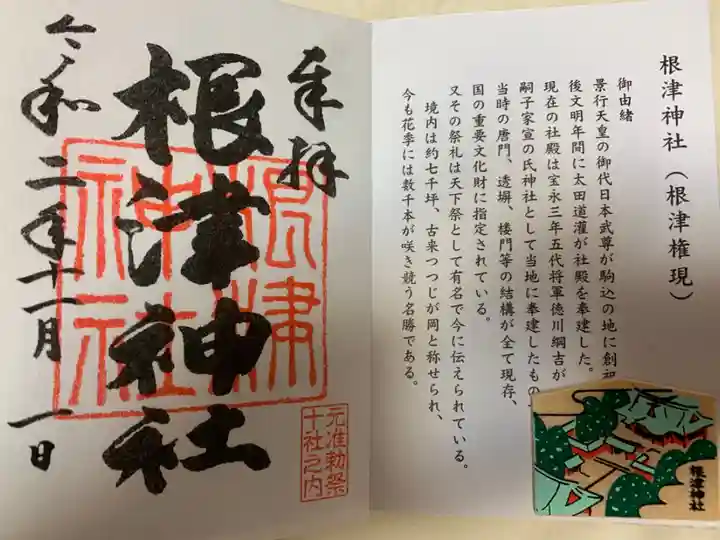 奉拝
根津神社
令和二年十一月一日
根津神社
元准勅祭
十社之内
根津神社(根津権現)
御由緒
景行天皇の御代日本武尊が駒込の地に創祀
後文明年間に太田道灌が社殿を奉建した。
現在の社殿は宝永三年五代将軍徳川綱吉が
嗣子家宣の氏神社として当地に奉建したもの
当時の唐門、透塀、楼門等の結構が全て現存、
国の重要文化財に指定されている。
又その祭礼は天下祭として有名で今に伝えられている。
境内は約七千坪、古来つつじが岡と称せられ、
今も花季には数千本が咲き競う名勝である。
根津神社